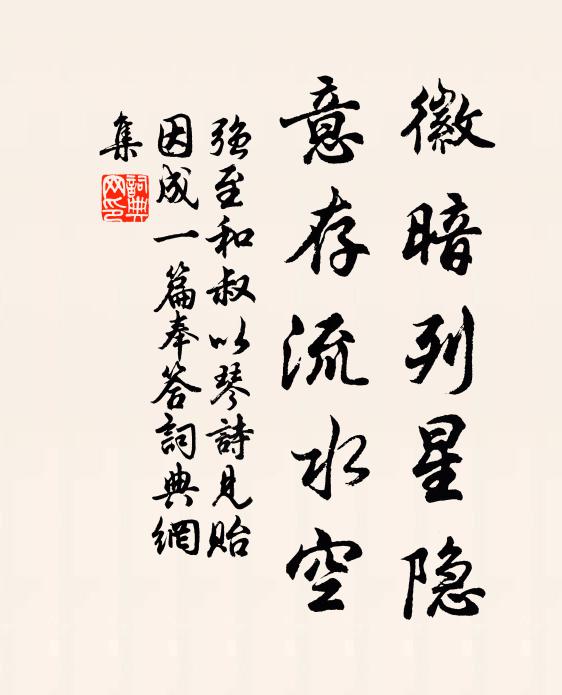 徽暗列星隐
意存流水空
強至和叔以琴詩見貽
因成一篇奉答詞典網
集
詞典
网印